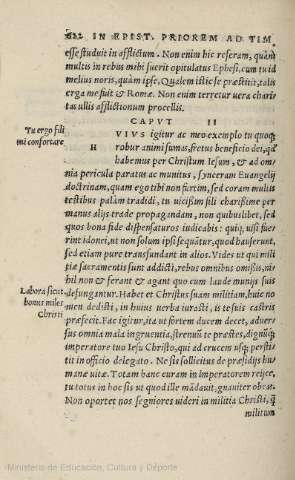 682 IN EPIST. PRIOREM AD TIM
esse studuit in afflictiũ. Non enim hic referam, quàm
multis in rebus mihi fuerit opitulatus Ephesi, cum tu id
melius noris, quàm ipse. Qualem istic se præstitit, talis
erga me fuit & Romæ. Non enim terretur uera chari-
tas ullis afflictionum procellis.
CAPVT II
Tu ergo fili
mi confortare
HVIVS igitur ac meo exemplo tu quoq;
robur animi sumas, fretus beneficio dei, qd
habemus per Christum Iesum, & ad om-
nia pericula paratus ac munitus, synceram Euangelij
doctrinam, quam ego tibi non furtim, sed coram multis
testibus palàm tradidi, tu uicissim fili charissime per
manus alijs trade propagandam, non quibuslibet, sed
quos bona fide dispensaturos iudicabis: quiq; usui fue-
rint idonei, ut non solum ipsi sequãtur, quod hauserunt,
sed etiam pure transfundant in alios. Vides ut qui mili
tiæ sacramentis sunt addicti, rebus omnibus omissis, ni-
hil non & ferant & agant quo cum laude munijs suis
Labora sicut
bonus miles
Christi
defungantur. Habet et Christus suam militiam, huic no
men dedisti, in huius uerba iurasti, is te suis castris
præfecit. Fac igitur, ita ut fortem ducem decet, aduer-
sus omnia mala ingruentia, strenuũ te præstes, dignũq;
imperatore tuo Iesu Christo, qui ad crucem usq; persti
tit in officio delegato. Ne sis sollicitus de præsidijs hu-
manæ uitæ. Totam hanc curam in imperatorem reijce,
tu totus in hoc sis ut quod ille mãdauit, gnauiter obeas.
Non oportet nos segniores uideri in militia Christi, q̃
militum
Ministerio de Educación, Cultura y Deporte